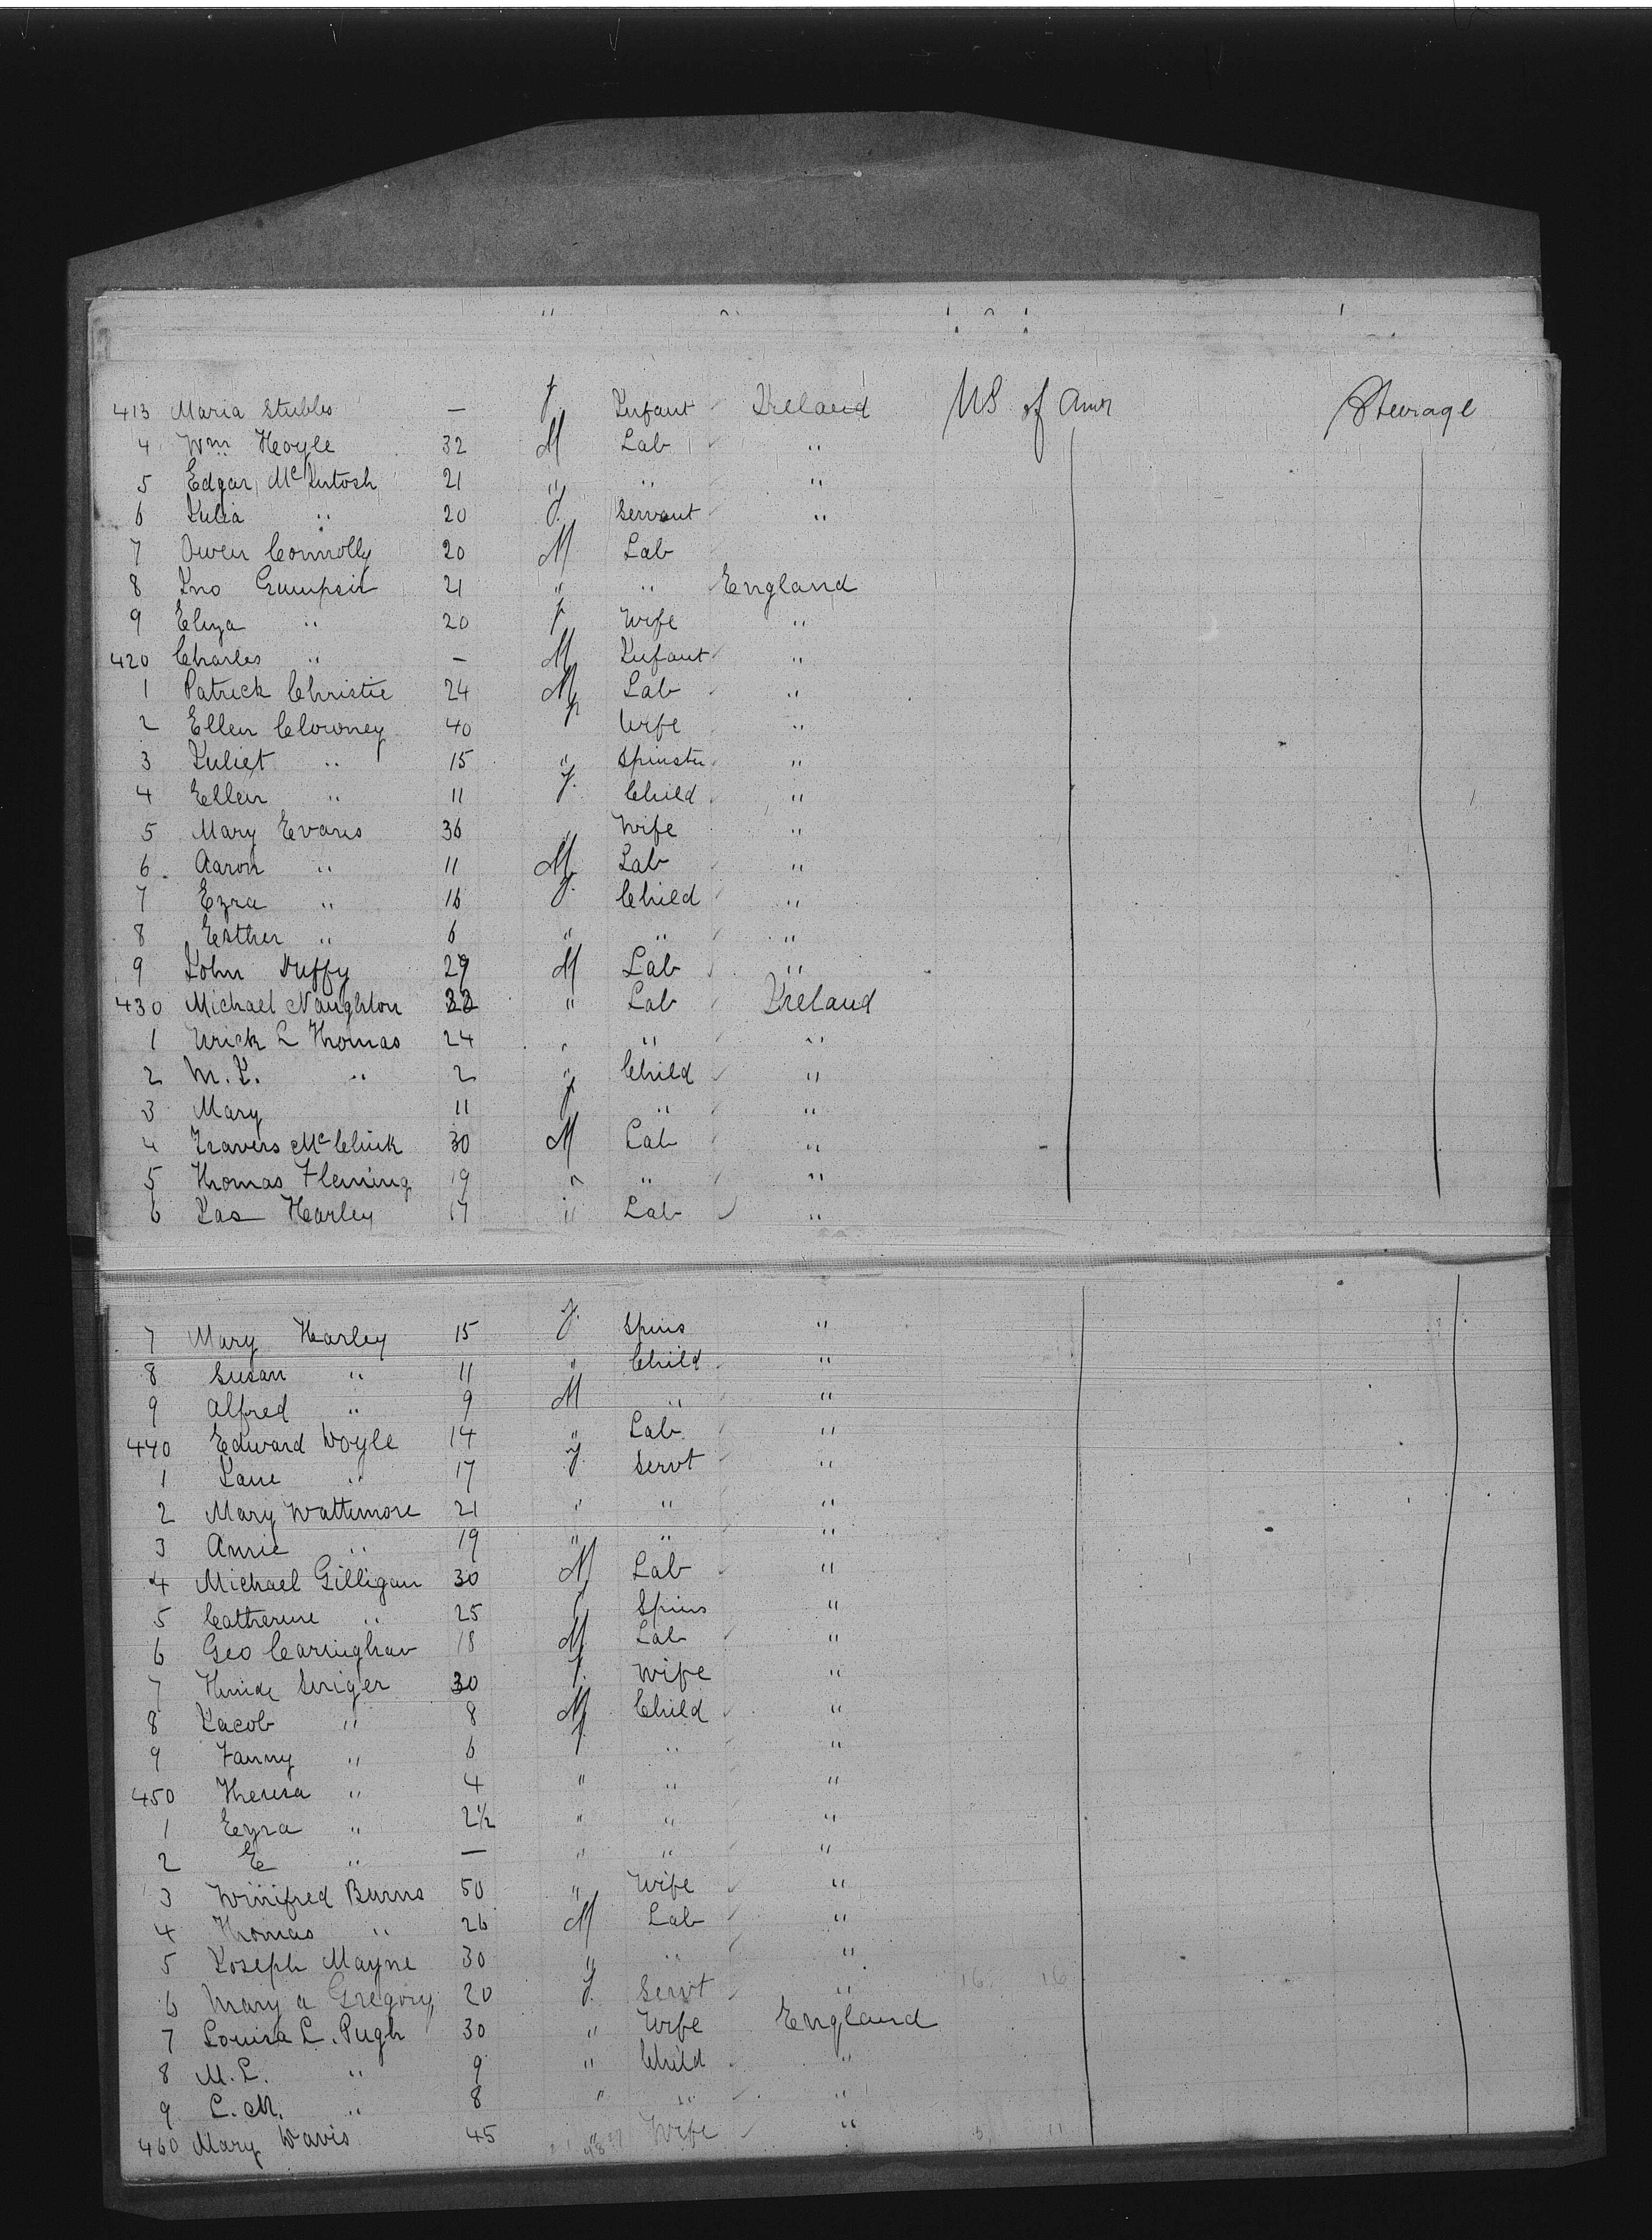 413 Maria Stubbs — f. Infant Ireland US of Amr Steerage
4 Wm Hoyle 32 M Lab "
5 Edgar McIntosh 21 " " "
6 Julia " 20 f. Servant "
7 Owen Connolly 20 M Lab
8 Jno 21 " " England
9 Eliza " 20 f Wife "
420 Charles " — M Infant "
1 Patrick Christie 24 M Lab "
2 Ellen Clowney 40 f Wife "
3 Juliet " 15 " Spinster "
4 Ellen " 11 f. Child "
5 Mary Evans 36 " Wife "
6 Aaron " 11 M Lab "
7 Ezra " 16 f. Child "
8 Esther " 6 " " "
9 John Duffy 29 M Lab "
430 Michael Naughton " Lab Ireland
1 Urick L Thomas 24 " " "
2 M. J. " 2 " Child "
3 Mary 11 f " "
4 Travers 30 M Lab "
5 Thomas Fleming 19 " " "
6 Jas Harley 17 " Lab "
7 Mary Harley 15 f. Spins "
8 Susan " 11 " Child "
9 Alfred " 9 M " "
440 Edward Doyle 14 " Lab "
1 Jane " 17 f. Servt "
2 Mary Wattimore 21 " " "
3 Annie " 19 " " "
4 Michael Gilligan 30 M Lab "
5 Catherine " 25 f Spins "
6 Geo 18 M Lab "
7 30 f. Wife "
8 Jacob " 8 M Child "
9 Fanny " 6 f " "
450 Theresa " 4 " " "
1 Ezra " 2½ " " "
2 E " — " " "
3 Winifred Burns 50 " Wife "
4 Thomas " 26 M Lab "
5 Joseph Mayne 30 " " "
6 Mary A Gregory 20 f. Servt " 16 16
7 Louisa L. Pugh 30 " Wife England
8 M. L. " 9 " Child "
9 L. M. " 8 " " "
460 Mary Davis 45 " Wife "